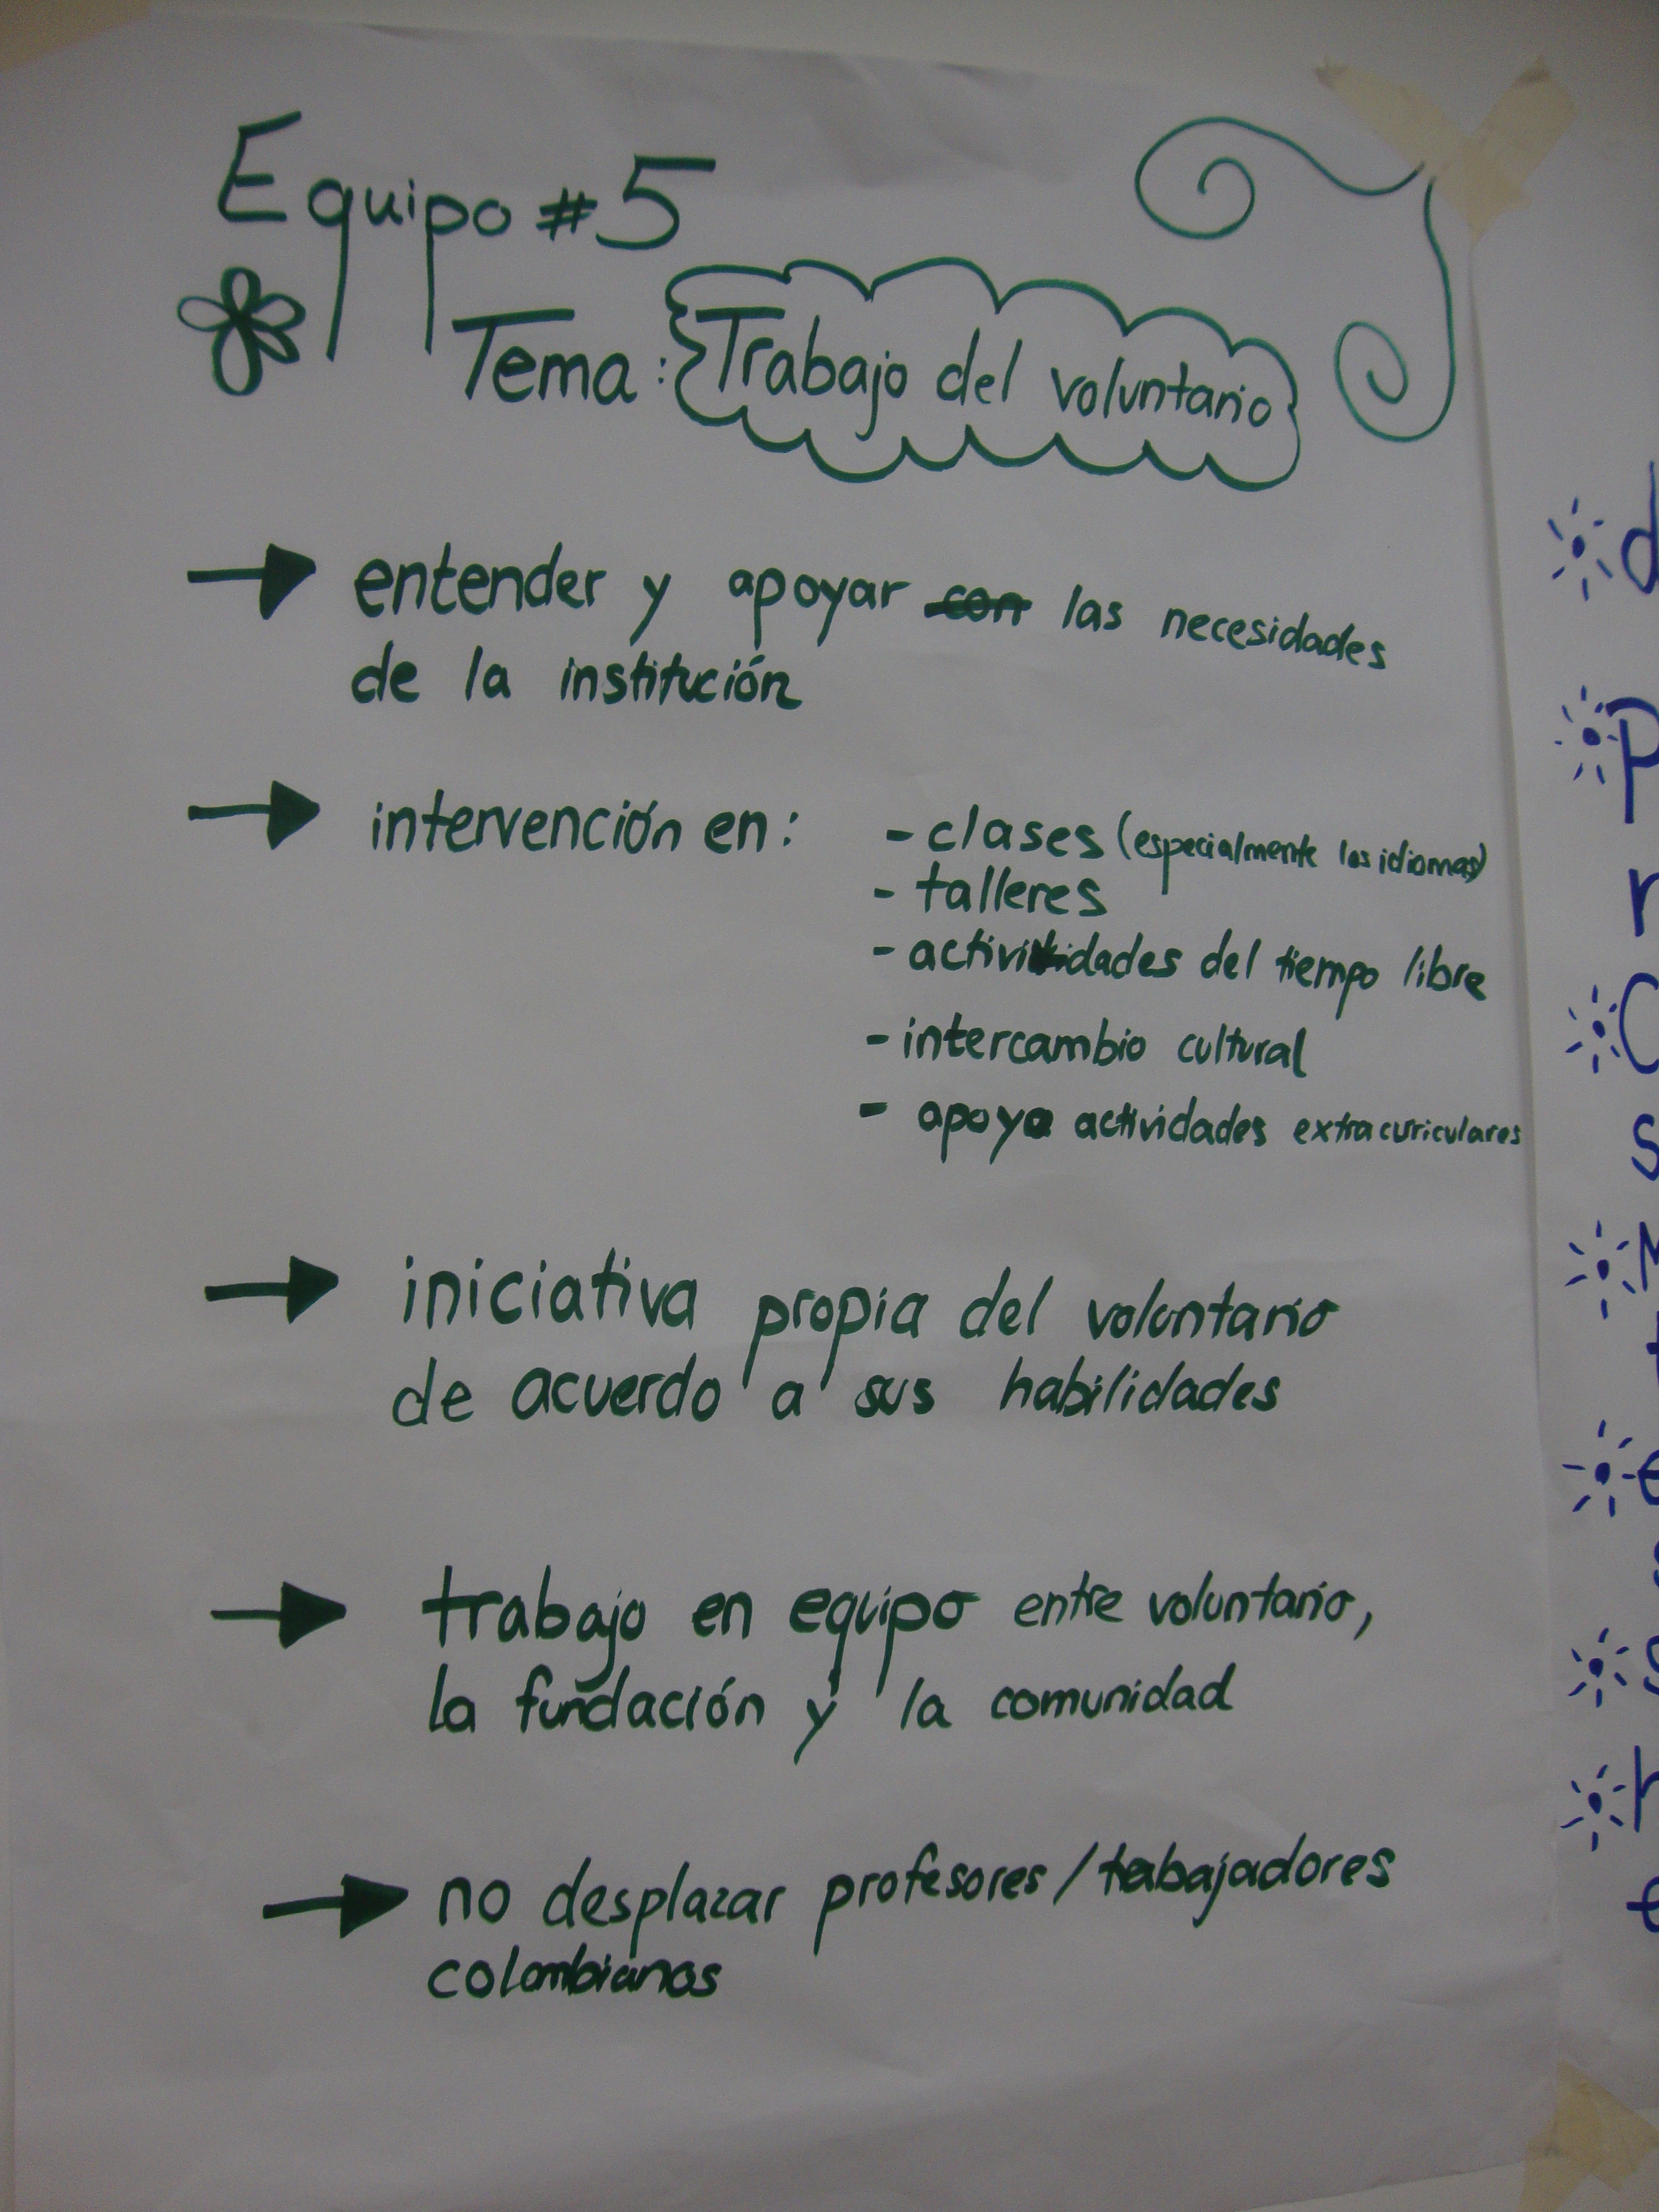 Equipo #5
Tema: Trabajo del voluntario
entender y apoyar con las necesidades
de la institución
intervención en: - clases (especialmente los idiomas)
- talleres
- actividades del tiempo libre
- intercambio cultural
- apoyo actividades extracuriculares
iniciativa propia del voluntario
de acuerdo a sus habilidades
trabajo en equipo entre voluntario,
la fundación y la comunidad
no desplazar profesores/trabajadores
colombianos